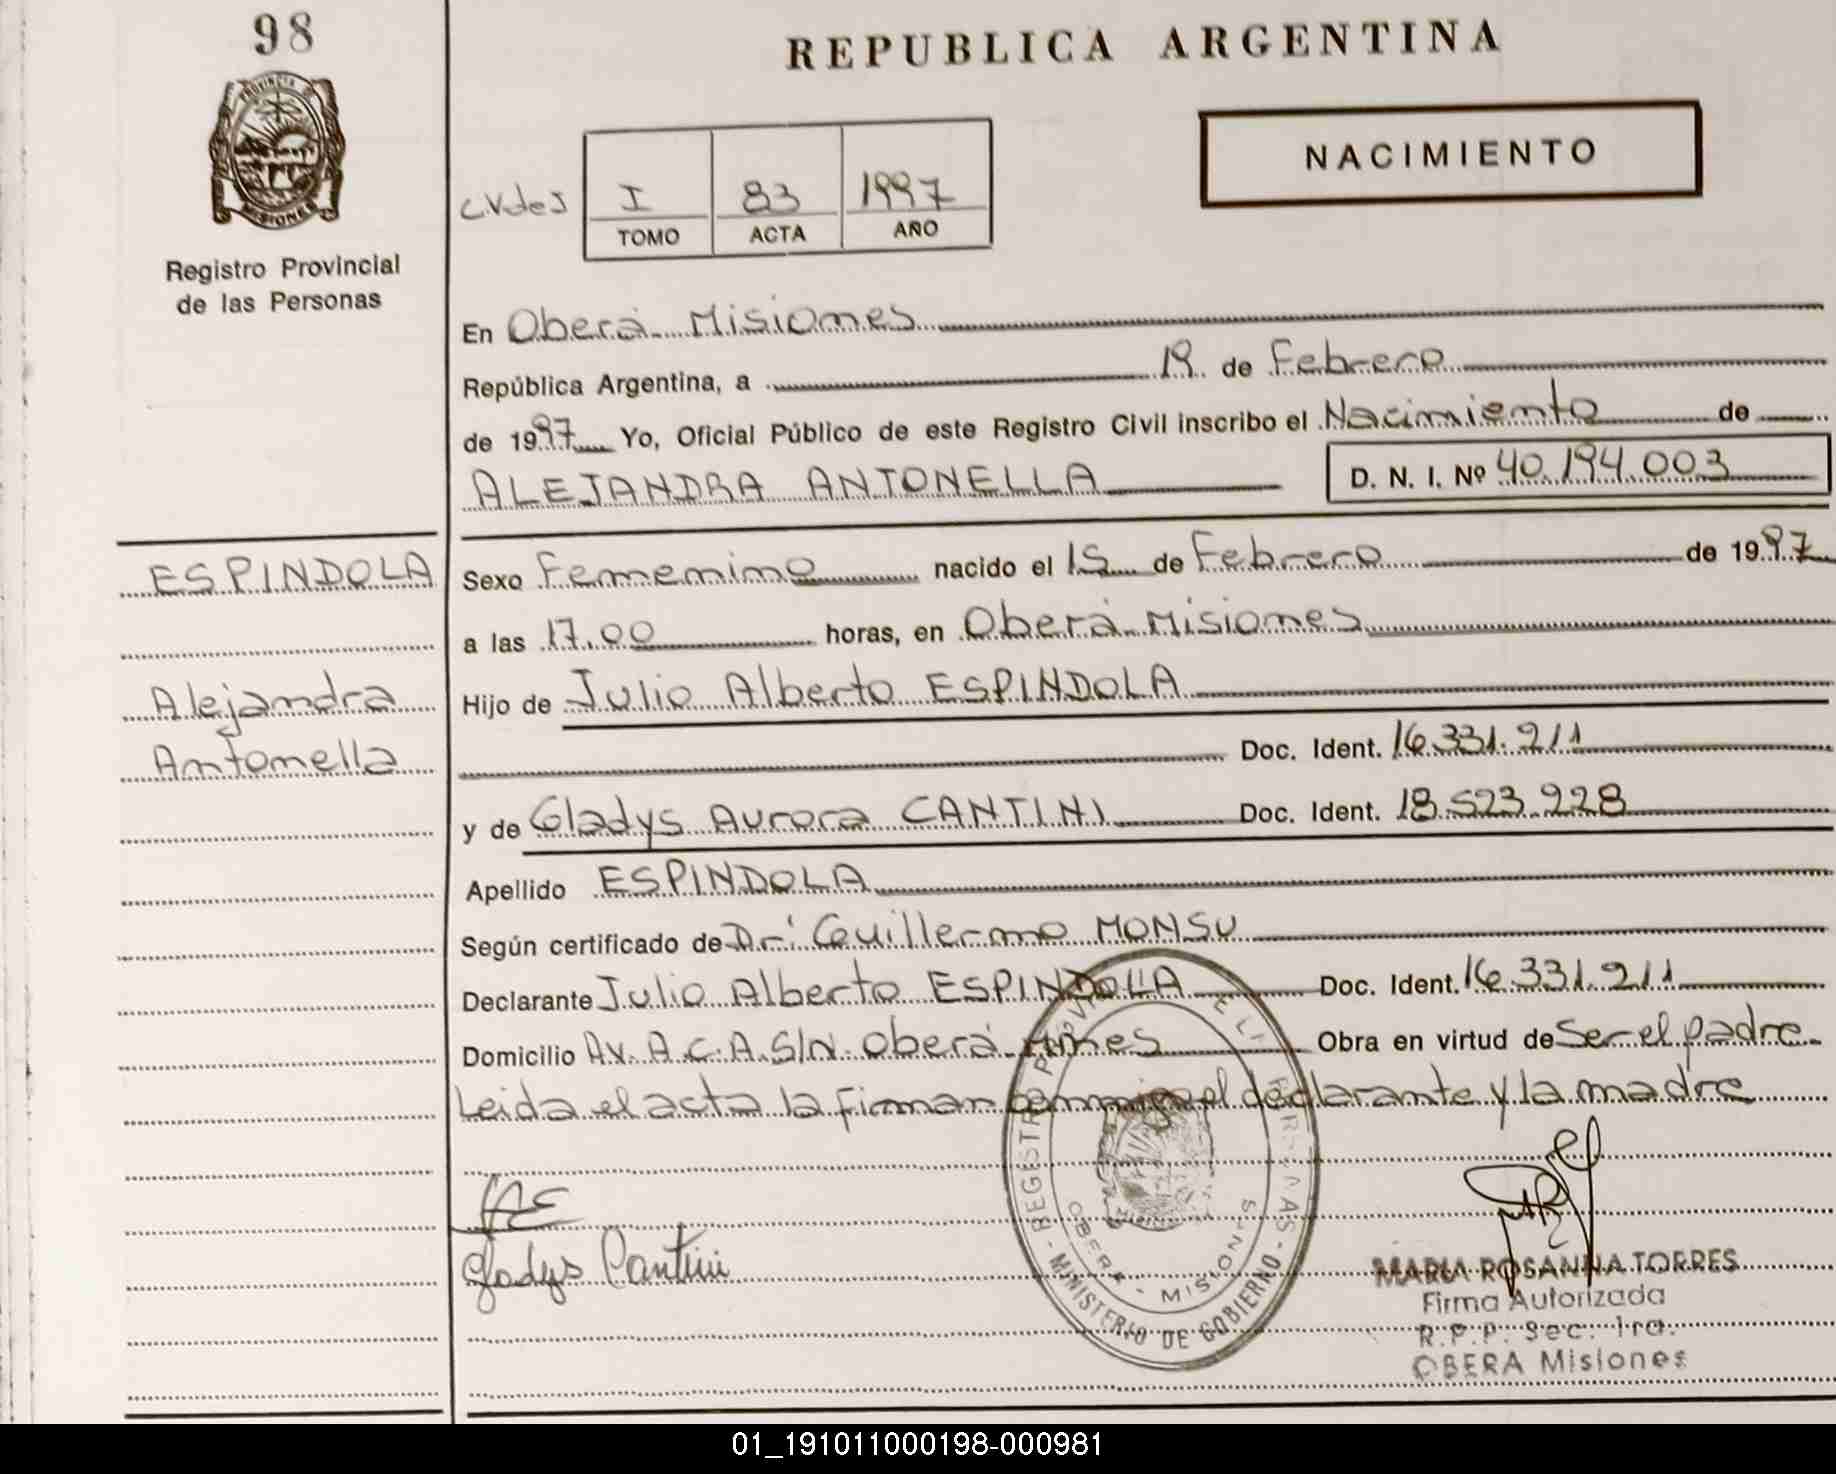 98
REPUBLICA ARGENTINA
PROVINCIA DE
MISIONES
Registro Provincial
de las Personas
NACIMIENTO
C.V.deJ
I 83 1997
TOMO ACTA AÑO
En Oberá Misiones
República Argentina, a 19 de Febrero
de 1997 Yo, Oficial Público de este Registro Civil inscribo el Nacimiento de
ALEJANDRA ANTONELLA D. N. I. Nº 40.194.003
ESPINDOLA
Alejandra
Antonella
Sexo Femenino nacido el 15 de Febrero de 1997
a las 17.00 horas, en Oberá Misiones
Hijo de Julio Alberto ESPINDOLA
Doc. Ident. 16.331.211
y de Gladys Aurora CANTINI Doc. Ident. 18.523.928
Apellido ESPINDOLA
Según certificado de Dr. Guillermo MONSU
Declarante Julio Alberto ESPINDOLA Doc. Ident. 16.331.211
Domicilio Av. A.C.A. S/N. Oberá Mnes Obra en virtud de Ser el padre
Leida el acta la firman conmigo el declarante y la madre
Gladys Cantini
REGISTRO PROV DE LAS PERSONAS - MINISTERIO DE GOBIERNO -
OBERA - MISIONES
MARIA ROSANNA TORRES
Firma Autorizada
R.P.P. Sec. 1ra.
OBERA Misiones
01_191011000198-000981